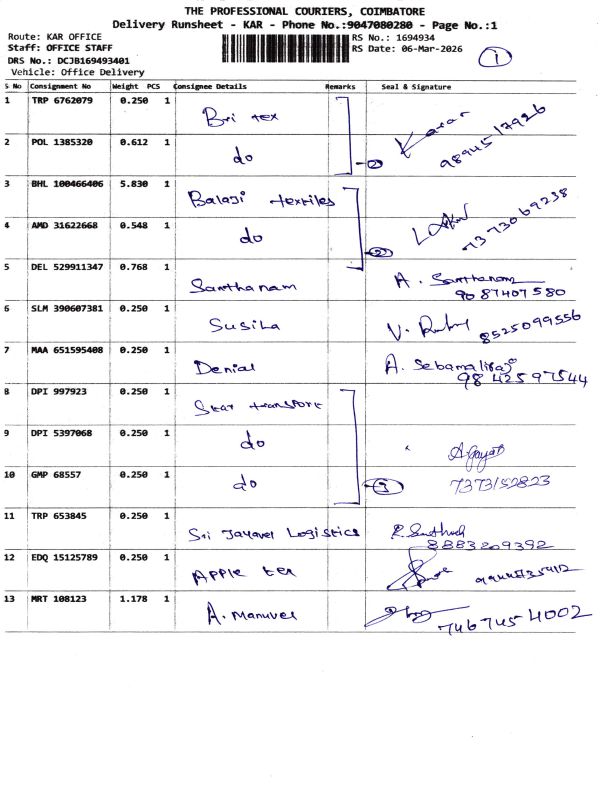 THE PROFESSIONAL COURIERS, COIMBATORE
Delivery Runsheet - KAR - Phone No.:9047080280 - Page No.:1
Route: KAR OFFICE
Staff: OFFICE STAFF
DRS No.: DCJB169493401
Vehicle: Office Delivery
RS No.: 1694934
RS Date: 06-Mar-2026
1
S No Consignment No Weight PCS Consignee Details Remarks Seal & Signature
1 TRP 6762079 0.250 1 Bri tex 9894517926
2 POL 1385320 0.612 1 do 2
3 BHL 100466406 5.830 1 Balaji textiles 7373069238
4 AMD 31622668 0.548 1 do 2
5 DEL 529911347 0.768 1 Santhanam A. Santhanam
9087407580
6 SLM 390607381 0.250 1 Susila V. 8525099556
7 MAA 651595408 0.250 1 Denial A. Sebamaliraj
9842597544
8 DPI 997923 0.250 1 Star transport
9 DPI 5397068 0.250 1 do
10 GMP 68557 0.250 1 do 3 7373152823
11 TRP 653845 0.250 1 Sri Jayavel Logistics
8883209392
12 EDQ 15125789 0.250 1 Apple tex
13 MRT 108123 1.178 1 A. Manuvel 7467454002